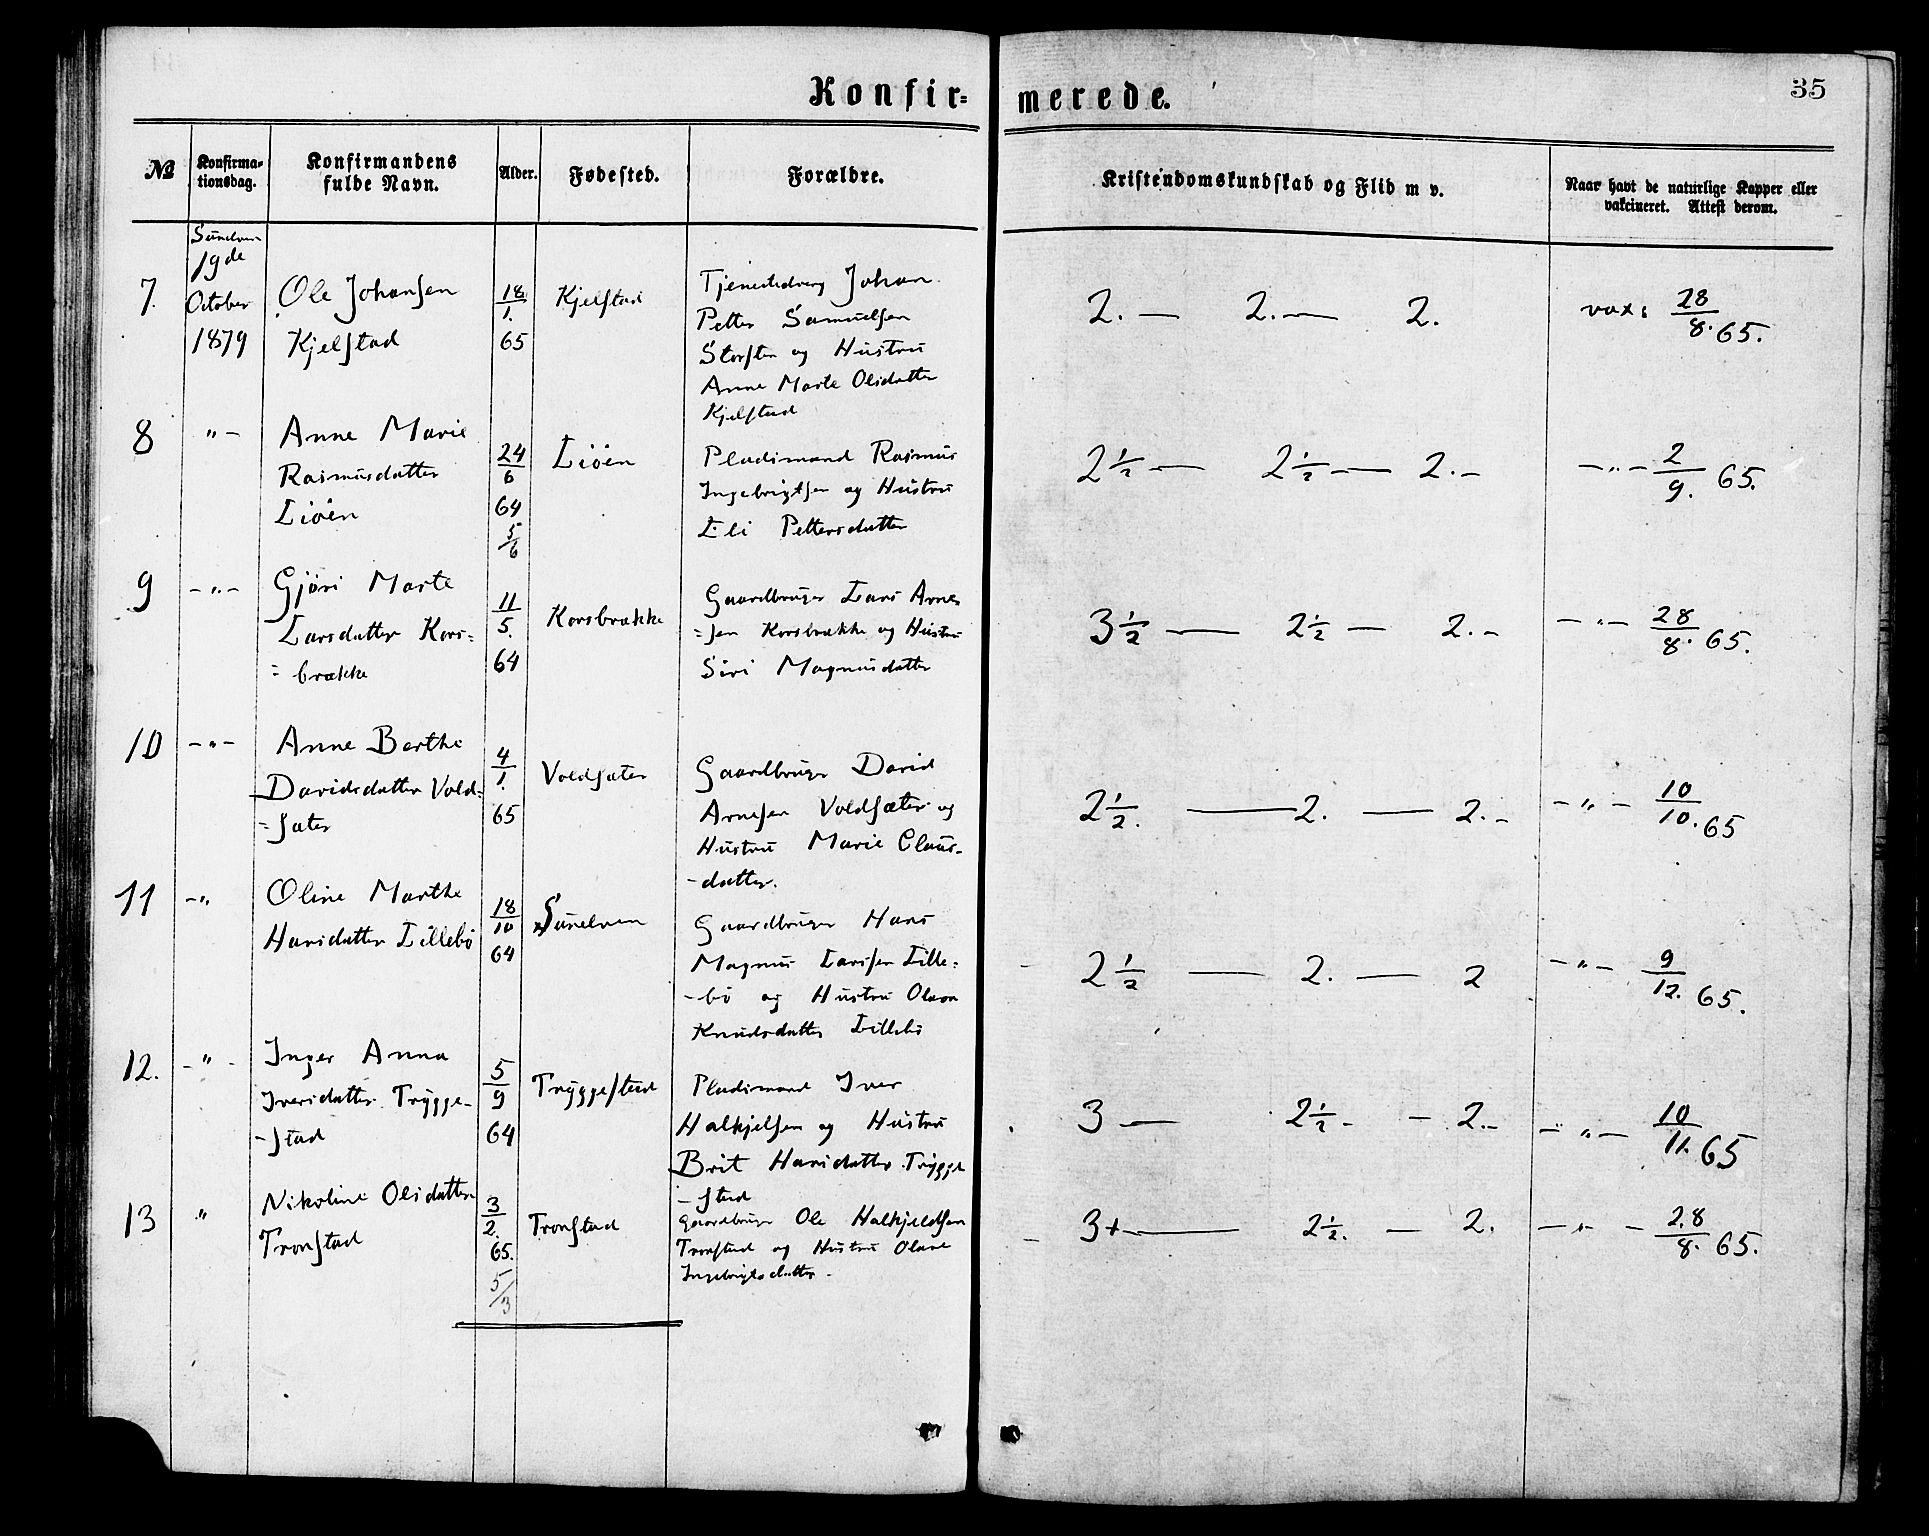 Konfir=
merede.
35
№
Konfirma-
tionsdag.
Konfirmandens
fulde Navn.
Alder.
Fødested.
Forældre.
Kristendomskundskab og Flid m v.
Naar havt de naturlige Kopper eller
vakcineret. Attest derom.
7.
19de
October
1879
Ole Johansen
Kjelstad
18/1.
65
Kjelstad
Johan
Petter Samuelsen
og Hustru
Anne Marte Olsdatter
Kjelstad
2. — 2. — 2.
vax: 28/8. 65.
8
" –
Anne Marie
Rasmusdatter
Liöen
24/6
64
5/6
Liöen
Pladsmand Rasmus
Ingebrigtsen og Hustru
Eli Pettersdatter
2½ — 2½ — 2. –
– " – 2/9. 65.
9
– " –
Gjøri Marte
Larsdatter Kors=
= brække
11/5.
64
Korsbrække
Gaardbruger Lars Arne-
= sen Korsbrække og Hustru
Siri Magnusdatter
3½ — 2½ — 2. –
– " – 28/8. 65.
10
– " –
Anne Berthe
Davidsdatter Vold=
= sæter
4/1.
65
Voldsæter
Gaardbruger David
Arnesen Voldsæter og
Hustru Marie Claus-
- datter.
2½. — 2. — 2. –
– " – 10/10. 65
11
– "
Oline Marthe
Hansdatter Lillebö
18/10
64
Sunelven
Gaardbruger Hans
Magnus Larssen Lille=
- bö og Hustru Olava
Knudsdatter Lillebö
2½ — 2. — 2
– " – 9/12. 65.
12.
– " –
Inger Anna
Iversdatter Trygge-
- stad
5/9
64
Tryggestad
Pladsmand Iver
Halkjelsen og Hustru
Brit Hansdatter Trygge
- stad
3 — 2½ – – 2. –
– " – 10/11. 65
13
"
Nikoline Olsdatter
Tronstad
3/2.
65.
5/3
Tronstad
Gaardbruger Ole Halkjeldsen
Tronstad og Hustru Olave
Ingebrigtsdatter –
3+ — 2½. — 2.
– " – 28/8. 65.